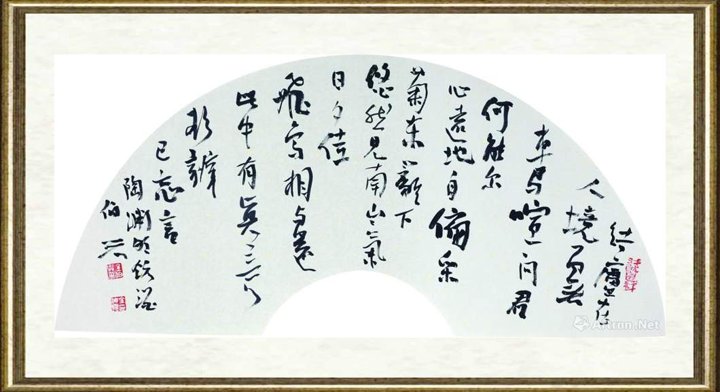 结廬在
人境而无
车马喧问君
何能尔
心遠地自偏采
菊东篱下
悠然见南山〻氣
日夕佳
飞鸟相与还
此中有真意
欲辯
已忘言
陶渊明饮酒
伯
Artron.Net